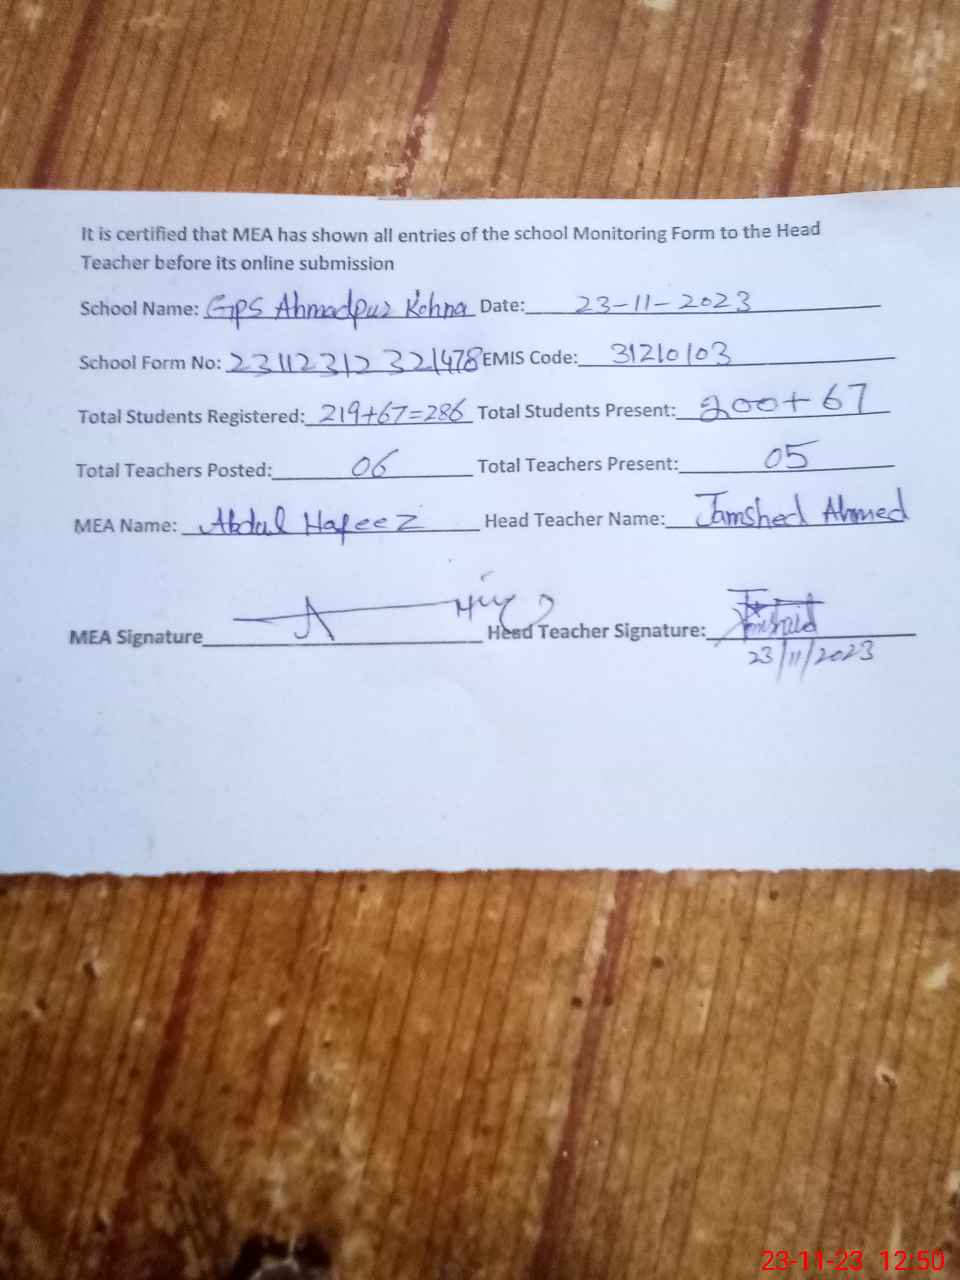 It is certified that MEA has shown all entries of the school Monitoring Form to the Head
Teacher before its online submission
School Name: GPS Ahmadpur Kohna Date: 23-11-2023
School Form No: 23112312321478 EMIS Code: 31210103
Total Students Registered: 219+67=286 Total Students Present: 200+67
Total Teachers Posted: 06 Total Teachers Present: 05
MEA Name: Abdul Hafeez Head Teacher Name: Jamshed Ahmed
MEA Signature Head Teacher Signature:
23/11/2023
23-11-23 12:50